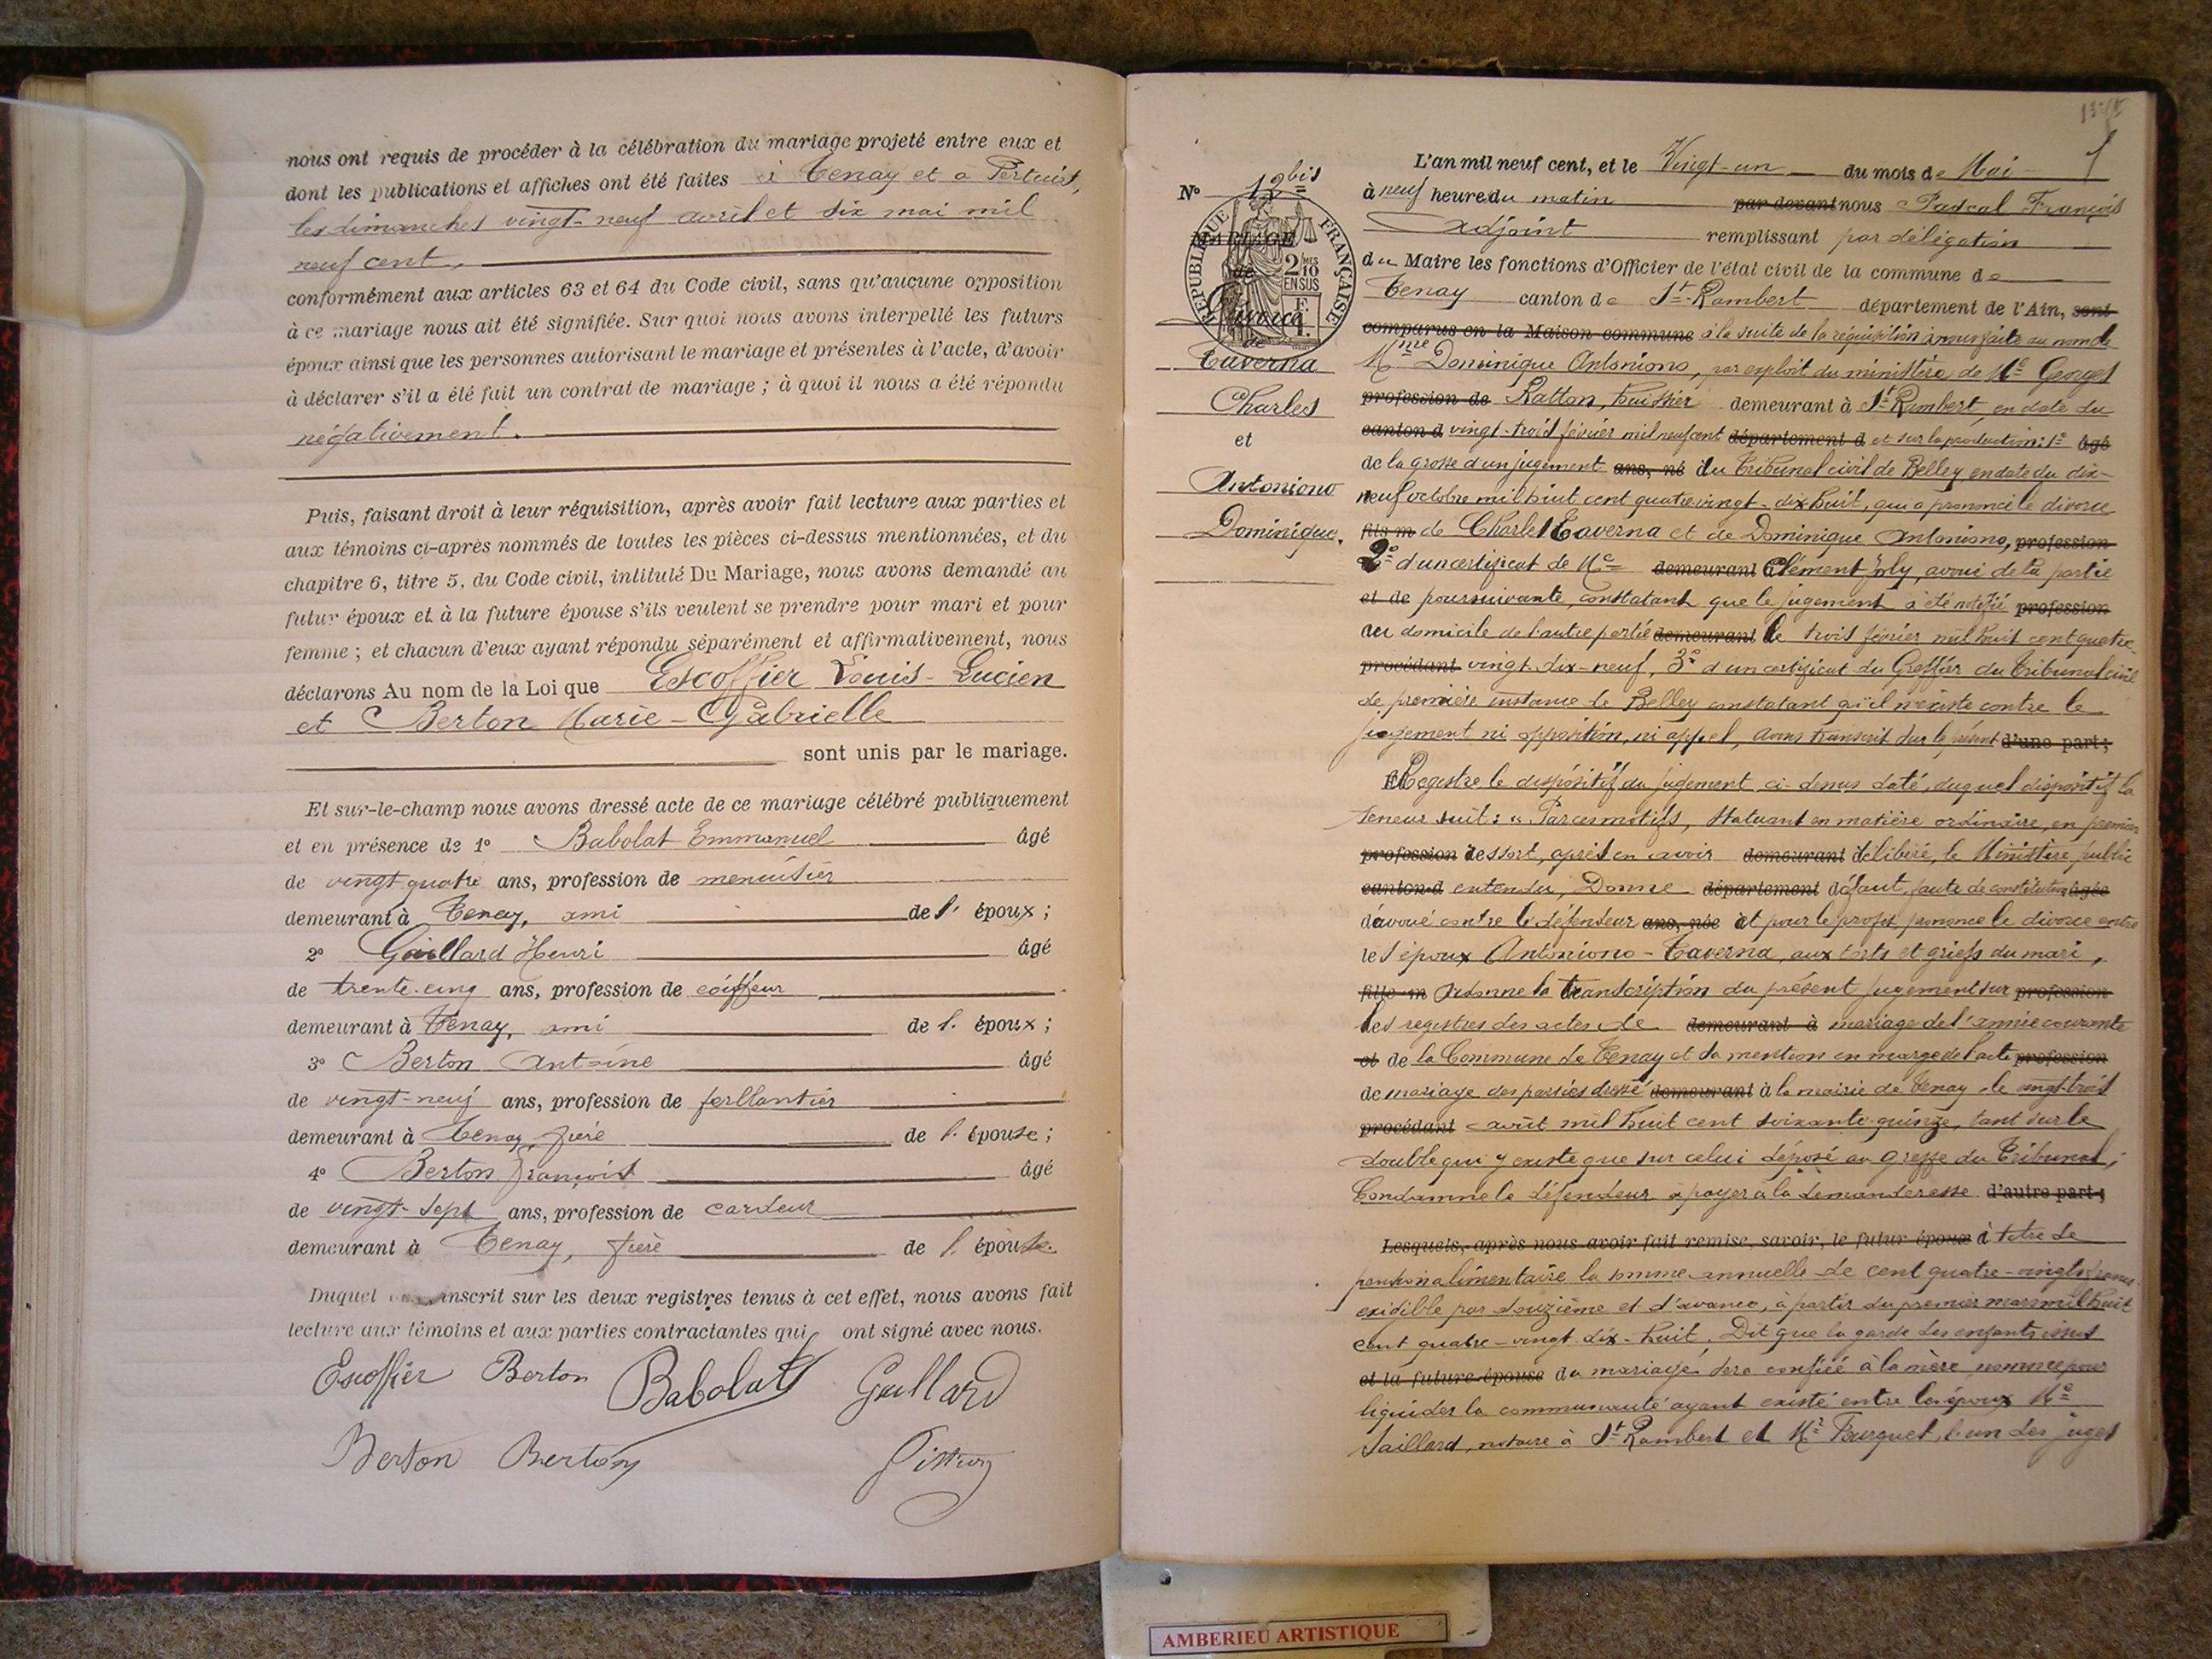 nous ont requis de procéder à la célébration du mariage projeté entre eux et
dont les publications et affiches ont été faites à Tenay et à Pertuis,
les dimanches vingt-neuf avril et six mai mil
neuf cent,
conformément aux articles 63 et 64 du Code civil, sans qu'aucune opposition
à ce mariage nous ait été signifiée. Sur quoi nous avons interpellé les futurs
époux ainsi que les personnes autorisant le mariage et présentes à l'acte, d'avoir
à déclarer s'il a été fait un contrat de mariage ; à quoi il nous a été répondu
négativement.
Puis, faisant droit à leur réquisition, après avoir fait lecture aux parties et
aux témoins ci-après nommés de toutes les pièces ci-dessus mentionnées, et du
chapitre 6, titre 5, du Code civil, intitulé Du Mariage, nous avons demandé au
futur époux et à la future épouse s'ils veulent se prendre pour mari et pour
femme ; et chacun d'eux ayant répondu séparément et affirmativement, nous
déclarons Au nom de la Loi que Escoffier Louis-Lucien
et Berton Marie-Gabrielle
sont unis par le mariage.
Et sur-le-champ nous avons dressé acte de ce mariage célébré publiquement
et en présence de 1° Babolat Emmanuel âgé
de vingt quatre ans, profession de menuisier
demeurant à Tenay, ami de l' époux ;
2° Gaillard Henri âgé
de trente-cinq ans, profession de coiffeur
demeurant à Tenay, ami de l' époux ;
3° Berton Antoine âgé
de vingt-neuf ans, profession de ferblantier
demeurant à Tenay, frère de l' épouse ;
4° Berton François âgé
de vingt-sept ans, profession de cardeur
demeurant à Tenay, frère de l' épouse.
Duquel inscrit sur les deux registres tenus à cet effet, nous avons fait
lecture aux témoins et aux parties contractantes qui ont signé avec nous.
Escoffier Berton Babolat Gaillard
Berton Berton
N° 12bis
MARIAGE
de
Divorce
de
Taverna
Charles
et
Antoniono
Dominique.
RÉPUBLIQUE FRANÇAISE
2 MES
10
EN SUS
L'an mil neuf cent, et le Vingt-un du mois de Mai
à neuf heure du matin par devant nous Pascal François
Adjoint remplissant par délégation
du Maire les fonctions d'Officier de l'état civil de la commune de
Tenay canton de St-Rambert département de l'Ain, sont
comparus en la Maison commune à la suite de la réquisition à nous faite au nom de
Mme Dominique Antoniono, par exploit du ministère de Me Georges
profession de Ratton, huissier demeurant à St Rambert, en date du
canton d vingt-trois février mil neuf cent département d et sur la production: 1° âgé
de la grosse d'un jugement ans, né du Tribunal civil de Belley en date du dix-
neuf octobre mil huit cent quatre vingt-dix huit, qui a prononcé le divorce
fils m de Charles Taverna et de Dominique Antoniono, profession
2° d'un certificat de Me demeurant Clément Joly, avoué de la partie
et de poursuivante, constatant que le jugement a été notifié profession
au domicile de l'autre partie demeurant le trois février mil huit cent quatre
procédant vingt-dix-neuf, 3° d'un certificat du Greffier du Tribunal civil
de première instance de Belley constatant qu'il n'existe contre le
jugement ni opposition, ni appel, avons transcrit sur le présent d'une part ;
Registre le dispositif du jugement ci-dessus daté, duquel dispositif la
teneur suit : « Par ces motifs, Statuant en matière ordinaire, en premier
profession ressort, après en avoir demeurant délibéré, le Ministère public
canton d entendu, Donne département défaut, faute de constitution âgée
d'avoué contre le défendeur ans, née et pour le profit, prononce le divorce entre
les époux Antoniono-Taverna, aux torts et griefs du mari,
fille m Ordonne la transcription du présent jugement sur profession
les registres des actes de demeurant à mariage de l'année courante
et de la Commune de Tenay et sa mention en marge de l'acte profession
de mariage des parties dressé demeurant à la mairie de Tenay le vingt-trois
procédant août mil huit cent soixante-quinze, tant sur le
double qui y existe que sur celui déposé au greffe du Tribunal ;
Condamne le défendeur à payer à la demanderesse d'autre part ;
Lesquels, après nous avoir fait remise, savoir, le futur époux à titre de
pension alimentaire la somme annuelle de cent quatre-vingts francs
exigible par douzième et d'avance, à partir du premier mars mil huit
cent quatre-vingt dix-huit. Dit que la garde des enfants issus
et la future épouse du mariage sera confiée à la mère, nomme pour
liquider la communauté ayant existé entre les époux Me
Saillard, notaire à St Rambert et Mr Burguet, l'un des juges
AMBERIEU ARTISTIQUE